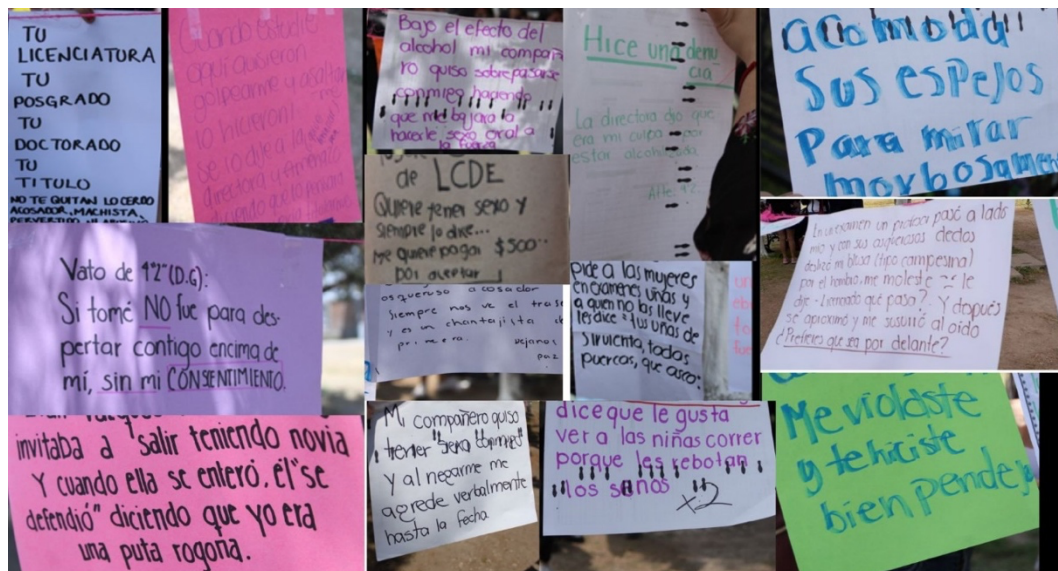 TU
LICENCIATURA
TU
POSGRADO
TU
DOCTORADO
TU
TITULO
NO TE QUITAN LO CERDO
ACOSADOR, MACHISTA,
Cuando estudié
aquí quisieron
golpearme y asaltar
lo hicieron!
se lo dije a la
directora y
diciendo que
Bajo el efecto del
alcohol mi compañe
ro quiso sobrepasarse
conmigo haciendo
que me bajara a
hacerle sexo oral a
la fuerza
Hice una denu
cia
La directora dijo que
era mi culpa por
estar alcoholizada
Att: 4°2
acomoda
sus espejos
Para mirar
morbosamen
de LCDE
Quiere tener sexo y
siempre lo dice...
Me quiere pagar $500
por aceptar
Vato de 4°2 (D.G):
Si tomé NO fue para des-
pertar contigo encima de
mí, sin mi CONSENTIMIENTO.
asqueroso acosador
Siempre nos ve el tras
y es un chantajista de
primera. Dejanos
paz
pide a las mujeres
en exámenes uñas y
a quien no las lleve
les dice "tus uñas de
sirvienta, todas
puercas, que asco"
En un examen un profesor pasó a lado
mío y con sus asquerosos dedos
deslizó mi blusa (tipo campesina)
por el hombro, me molesté y le
dije - Licenciado qué pasa?. Y después
se aproximó y me susurró al oído
¿Prefieres que sea por delante?
invitaba a "salir teniendo novia
Y cuando ella se enteró, él "se
defendió" diciendo que yo era
una puta rogona.
Mi compañero quiso
tener "sexo conmigo"
y al negarme me
agrede verbalmente
hasta la fecha.
dice que le gusta
ver a las niñas correr
porque les rebotan
los senos x2
Me violaste
y te hiciste
bien pendejo